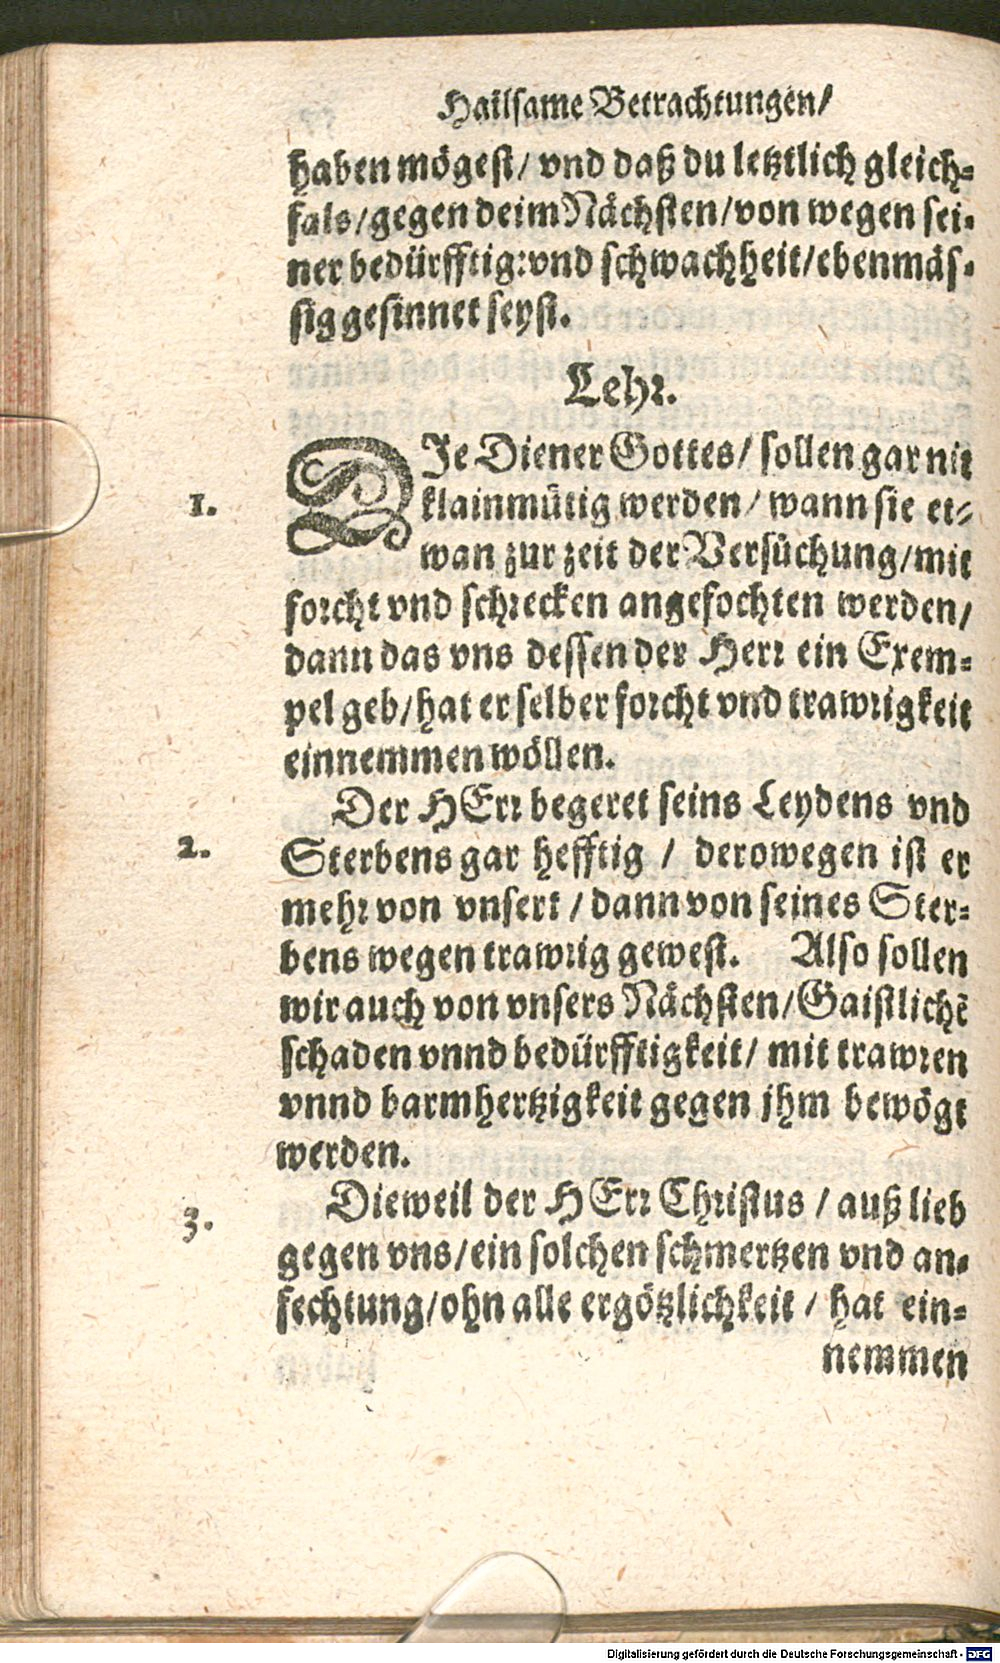 Hailsame Betrachtungen/
haben mögest/ vnd daß du letztlich gleich-
fals/gegen deim Nächsten/von wegen sei-
ner bedürfftig: vnd schwachheit/ebenmäs-
sig gesinnet seyst.
Lehr.
1. DIe Diener Gottes/ sollen gar nit
klainmütig werden/ wann sie et-
wan zur zeit der Versüchung/mit
forcht vnd schrecken angefochten werden/
dann das vns dessen der Herr ein Exem-
pel geb/hat er selber forcht vnd trawrigkeit
einnemmen wöllen.
Der HErr begeret seins Leydens vnd
2. Sterbens gar hefftig / derowegen ist er
mehr von vnsert / dann von seines Ster-
bens wegen trawrig gewest. Also sollen
wir auch von vnsers Nächsten/Gaistlichē
schaden vnnd bedürfftigkeit/ mit trawren
vnnd barmhertzigkeit gegen jhm bewögt
werden.
3. Dieweil der HErr Christus / auß lieb
gegen vns/ein solchen schmertzen vnd an-
fechtung/ohn alle ergötzlichkeit / hat ein-
nemmen
Digitalisierung gefördert durch die Deutsche Forschungsgemeinschaft - DFG